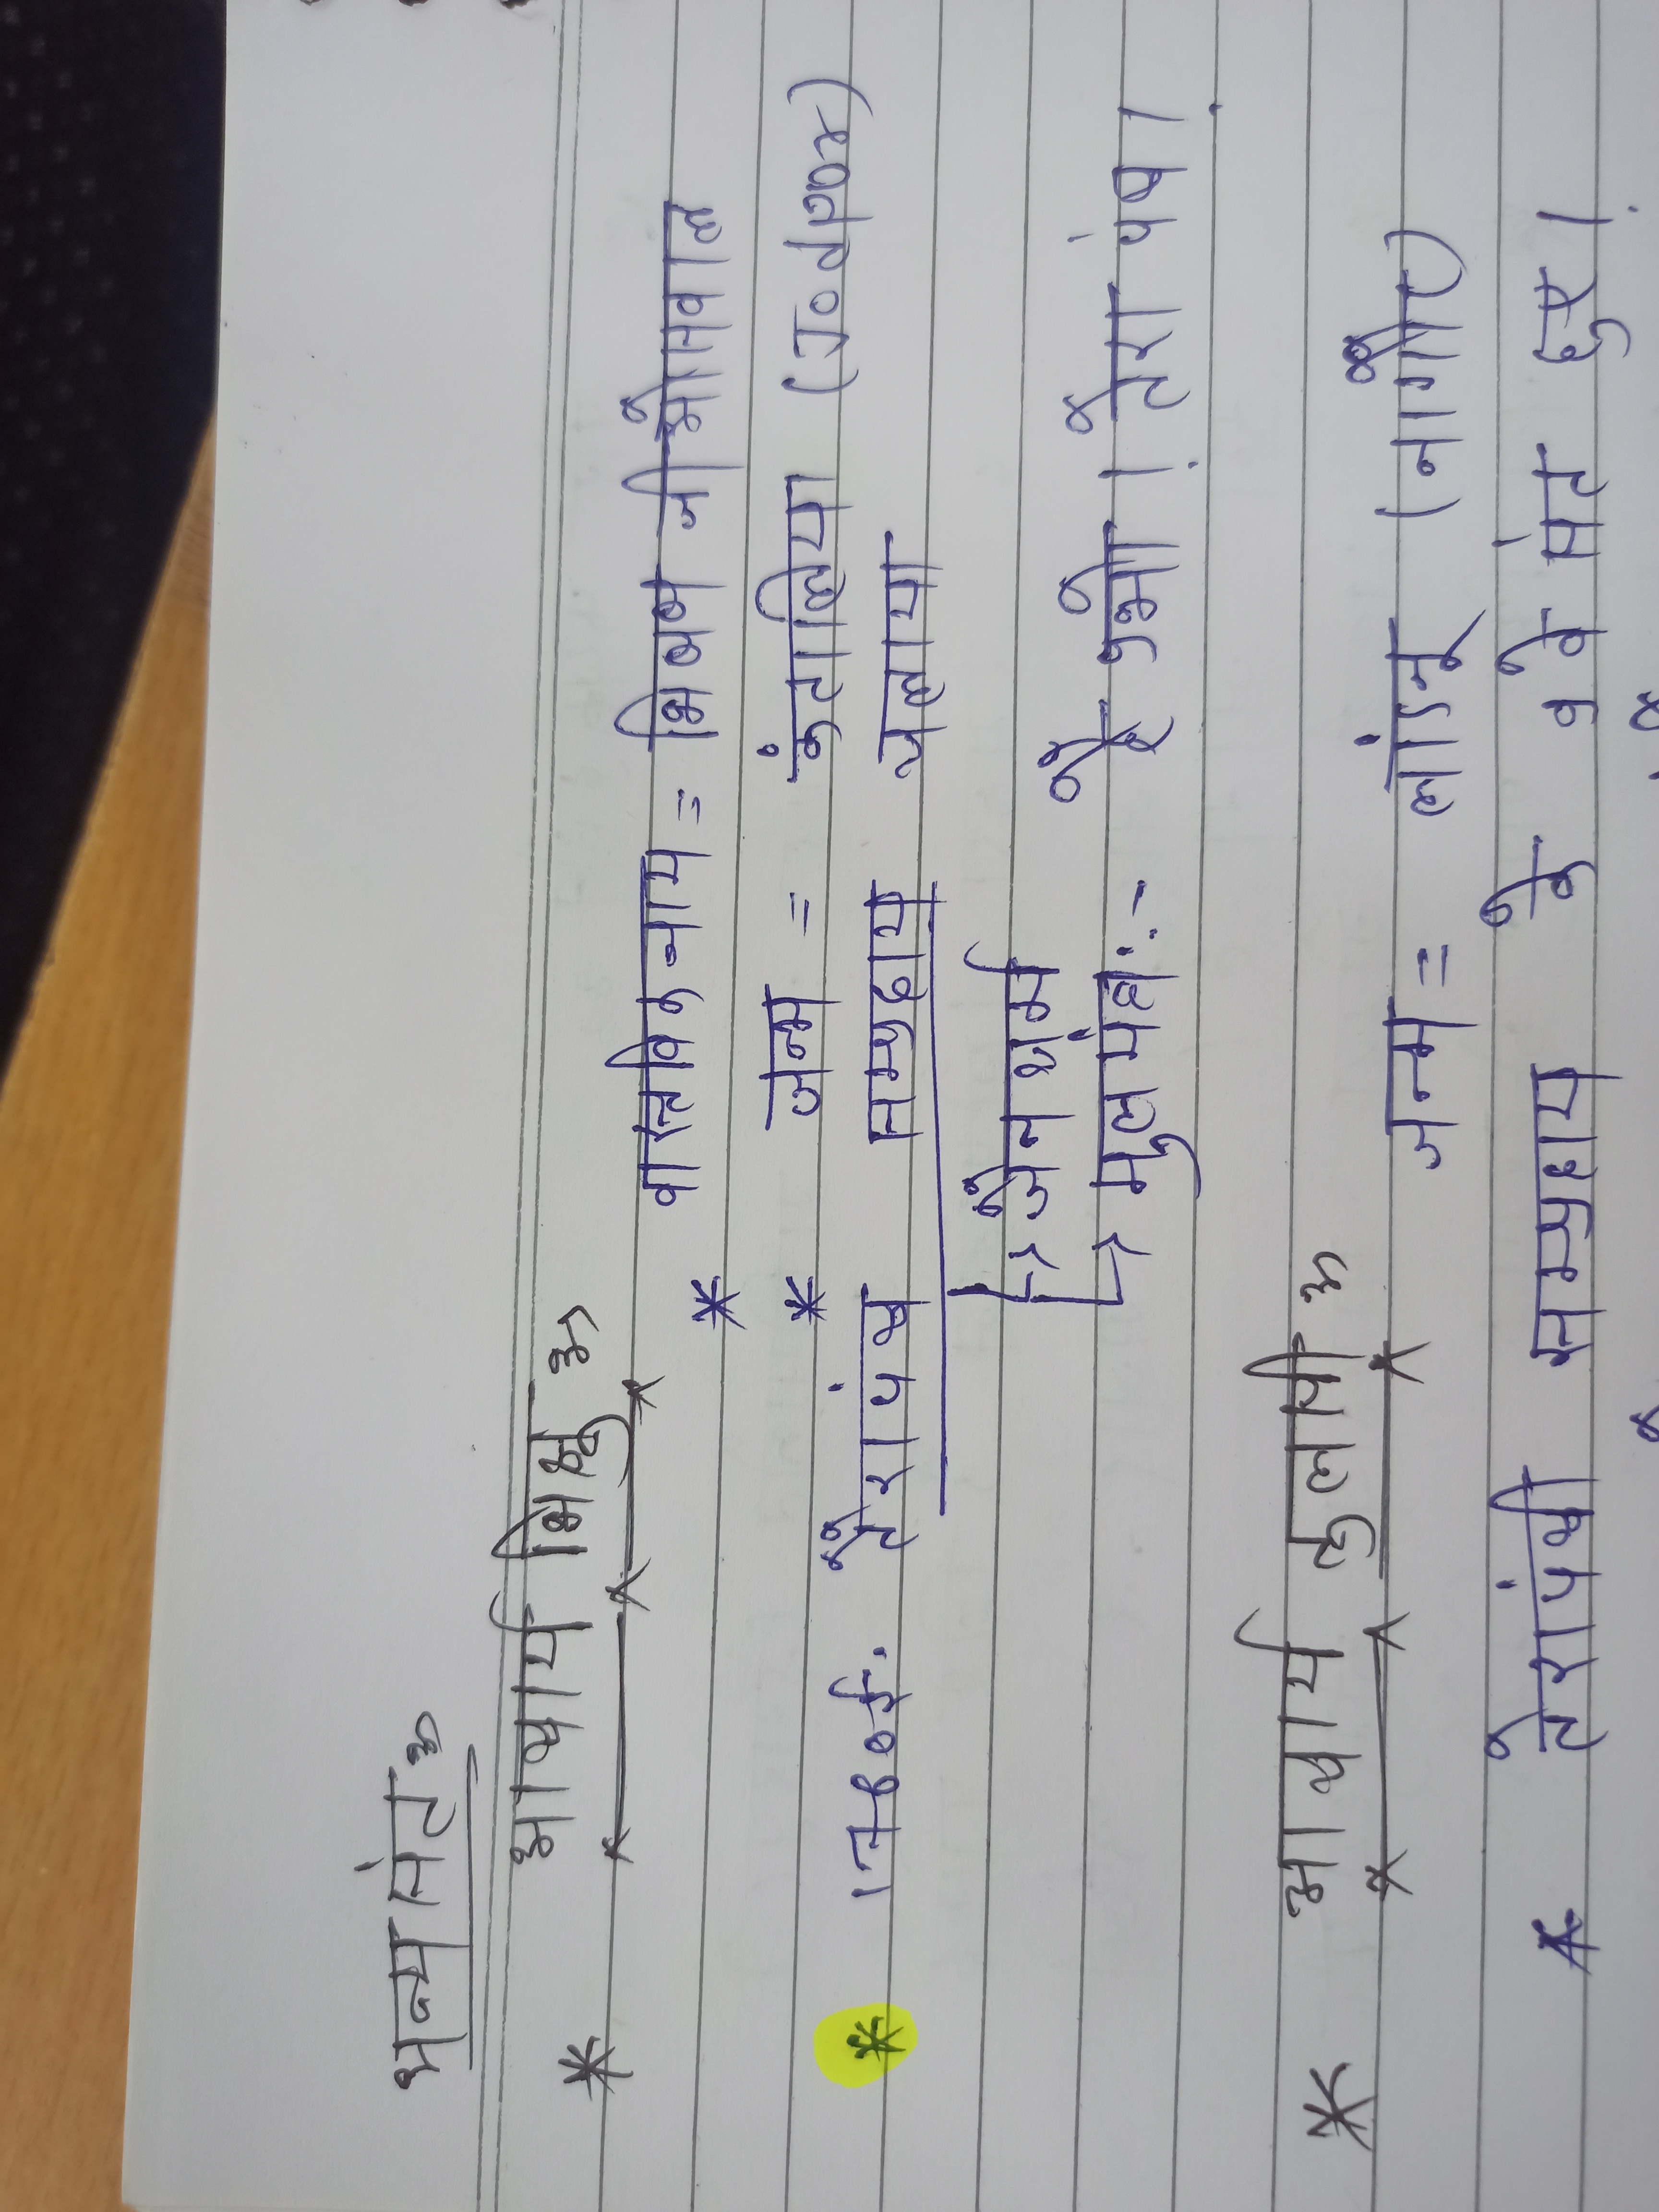 अन्य संत :-
* आचार्य भिक्षु :-
* वास्तविक नाम = भिखण जी ओसवाल
* जन्म = कंतालिया (Jodpor)
* 1760 ई. तेरापंथ सम्प्रदाय चलाया
→ जैन धर्म
→ मूल मंत्र :- हे प्रभो । तेरा पंथ ।
* आचार्य तुलसी :-
जन्म = लांडनू (नागौर)
* तेरापंथी सम्प्रदाय के 9 वें संत हुए ।